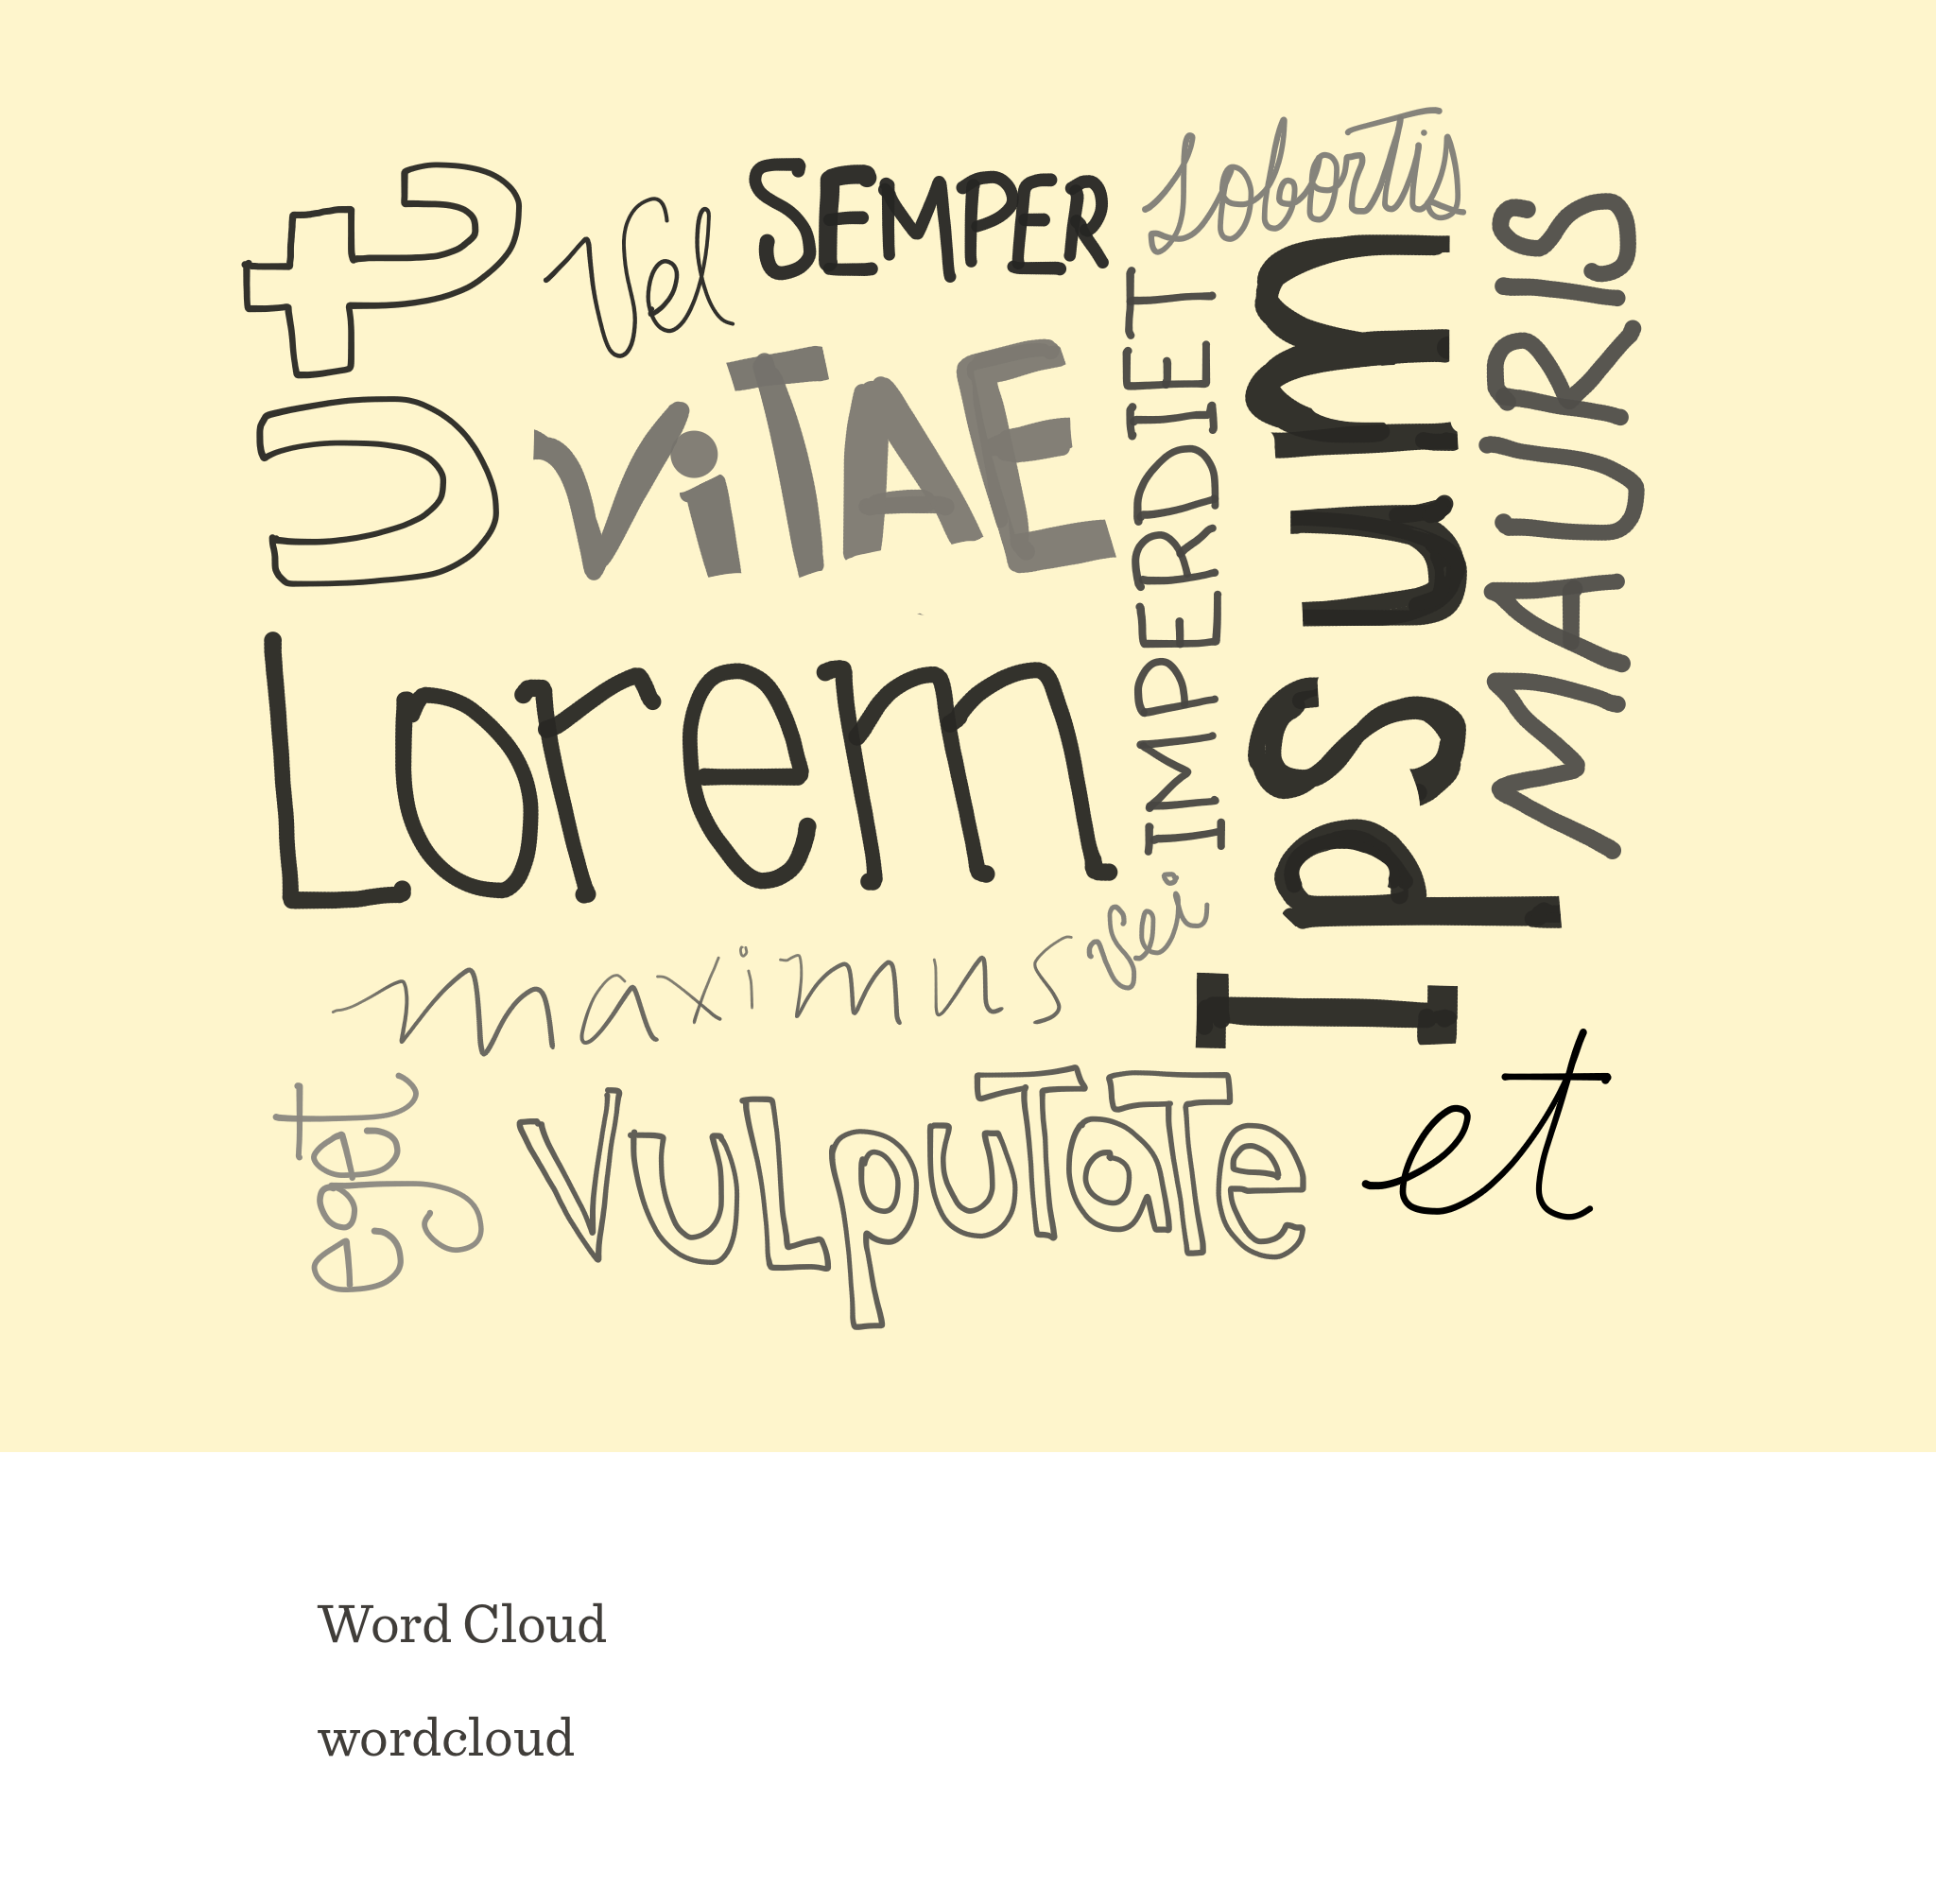 ut
Vel
SEMPER
lobortis
ViTAE
IMPERDIET
Ipsum
MAURIS
Lorem
maximus
eget
VuLpuTaTe
et
Word Cloud
wordcloud